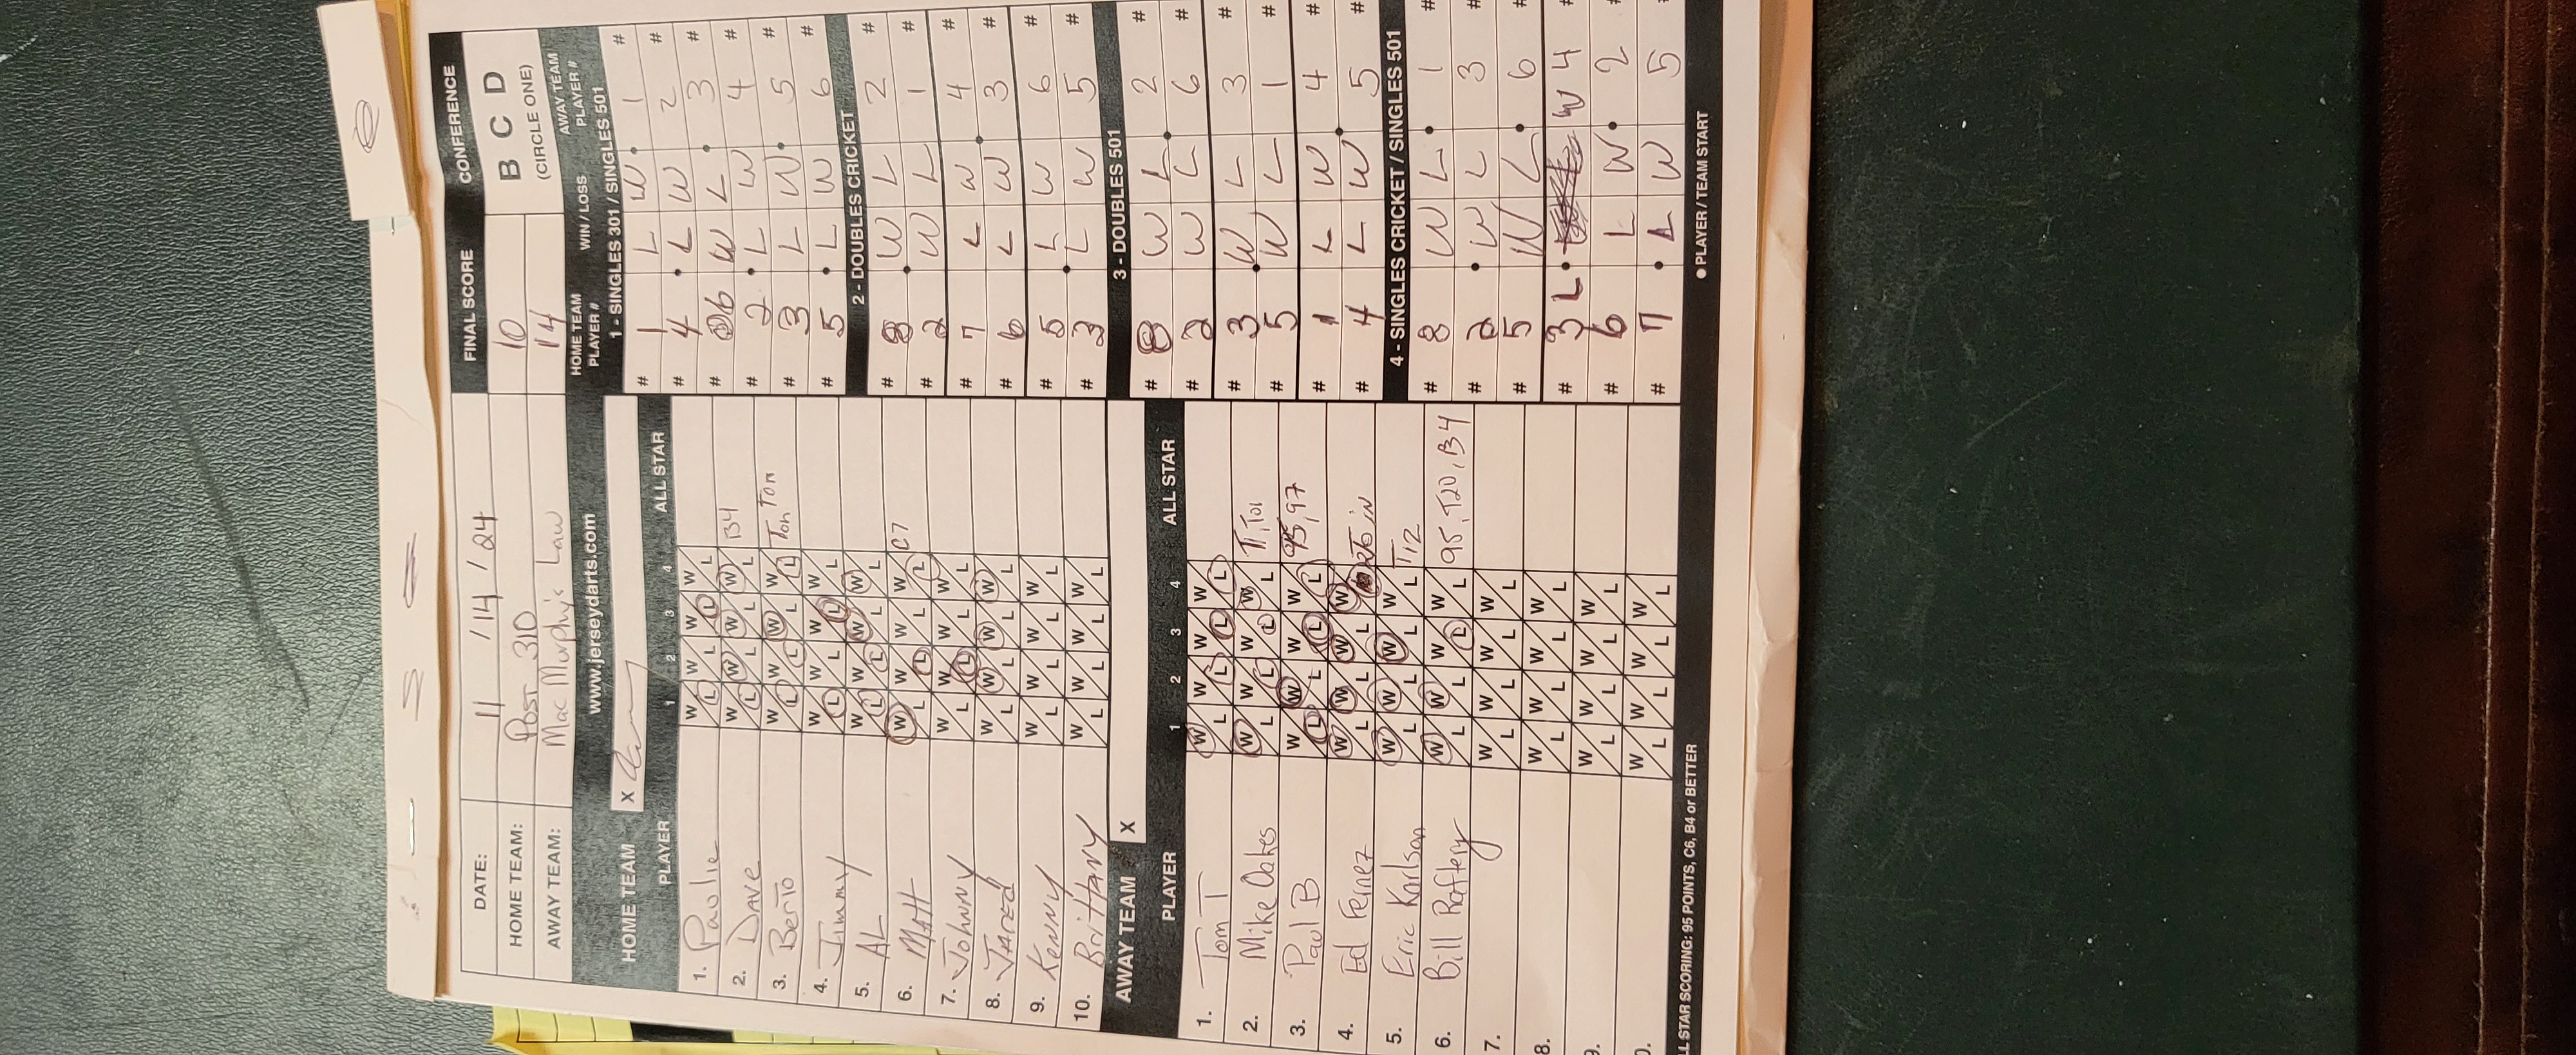 DATE: 11 / 14 / 24 FINAL SCORE CONFERENCE
HOME TEAM: Post 310 10 B C D
AWAY TEAM: Mac Murphy's Law 14 (CIRCLE ONE)
www.jerseydarts.com
HOME TEAM X
PLAYER 1 2 3 4 ALL STAR
1. Paulie W L W L W L W L
2. Dave W L W L W L W L B4
3. Berto W L W L W L W L Ton Ton
4. Jimmy W L W L W L W L
5. AL W L W L W L W L
6. Matt W L W L W L W L C7
7. Johnny W L W L W L W L
8. Jared W L W L W L W L
9. Kenny W L W L W L W L
10. Brittany W L W L W L W L
AWAY TEAM X
PLAYER 1 2 3 4 ALL STAR
1. Tom T W L W L W L W L
2. Mike Oakes W L W L W L W L T, T01
3. Paul B W L W L W L W L 95, 97
4. Ed Fernez W L W L W L W L in
5. Eric Karlson W L W L W L W L T12
6. Bill Raftery W L W L W L W L 95, T20, B4
7. W L W L W L W L
8. W L W L W L W L
9. W L W L W L W L
0. W L W L W L W L
LL STAR SCORING: 95 POINTS, C6, B4 or BETTER
HOME TEAM PLAYER # WIN / LOSS AWAY TEAM PLAYER #
1 - SINGLES 301 / SINGLES 501
# 1 L W 1 #
# 4 L W 2 #
# 6 W L 3 #
# 2 L W 4 #
# 3 L W 5 #
# 5 L W 6 #
2 - DOUBLES CRICKET
# 8 W L 2 #
# 2 W L 1 #
# 7 L W 4 #
# 6 L W 3 #
# 5 L W 6 #
# 3 L W 5 #
3 - DOUBLES 501
# 8 W L 2 #
# 2 W L 6 #
# 3 W L 3 #
# 5 W L 1 #
# 1 L W 4 #
# 4 L W 5 #
4 - SINGLES CRICKET / SINGLES 501
# 8 W L 1 #
# 2 W L 3 #
# 5 W L 6 #
# 3 L W 4 #
# 6 L W 2 #
# 7 L W 5 #
● PLAYER / TEAM START